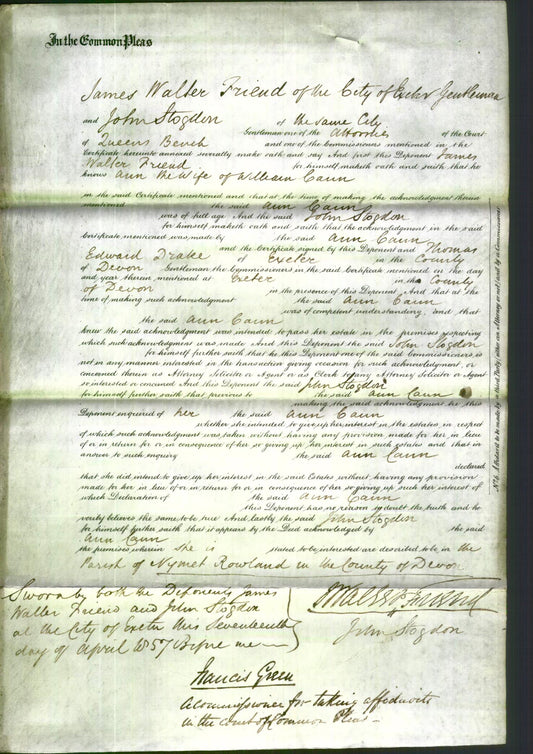 In the Common Pleas
James Walter Friend of the City of Exeter Gentleman
and John Stogdon of the same City
Gentleman one of the Attornies of the Court
of Queens Bench and one of the Commissioners mentioned in the
Certificate hereunto annexed severally make oath and say And first this Deponent James
Walter Friend for himself maketh oath and saith that he
knows Ann the Wife of William Cann
in the said Certificate mentioned and that at the time of making the acknowledgment therein
mentioned the said Ann Cann
was of full age And the said John Stogdon
for himself maketh oath and saith that the acknowledgment in the said
Certificate mentioned was made by the said Ann Cann
and the Certificate signed by this Deponent and Thomas
Edward Drake of Exeter in the County
of Devon Gentleman the Commissioners in the said Certificate mentioned on the day
and year therein mentioned at Exeter in the County
of Devon in the presence of this Deponent, And that at the
time of making such acknowledgment the said Ann Cann
was of competent understanding, and that
the said Ann Cann
knew the said acknowledgment was intended to pass her estate in the premises respecting
which such acknowledgment was made And this Deponent the said John Stogdon
for himself further saith that he this Deponent one of the said Commissioners is
not in any manner interested in the transaction giving occasion for such acknowledgment, or
concerned therein as Attorney Solicitor or Agent or as Clerk to any Attorney Solicitor or Agent
so interested or concerned And this Deponent the said John Stogdon
for himself further saith that previous to the said Ann Cann
making the said acknowledgment he this
Deponent enquired of her the said Ann Cann
whether she intended to give up her interest in the estates in respect
of which such acknowledgment was taken without having any provision made for her in lieu
of or in return for or in consequence of her so giving up her interest in such estates and that in
answer to such enquiry the said Ann Cann
declared
that she did intend to give up her interest in the said Estates without having any provision
made for her in lieu of or in return for or in consequence of her so giving up such her interest of
which Declaration of the said Ann Cann
this Deponent has no reason to doubt the truth and he
verily believes the same to be true And lastly the said John Stogdon
for himself further saith that it appears by the Deed acknowledged by the said
Ann Cann
the premises wherein she is stated to be interested are described to be in the
Parish of Nymet Rowland in the County of Devon
Sworn by both the Deponents James
Walter Friend and John Stogdon
at the City of Exeter this Seventeenth
day of April 1857 Before me
JWalter Friend
John Stogdon
Francis Green
A Commissioner for taking affidavits
in the Court of Common Pleas